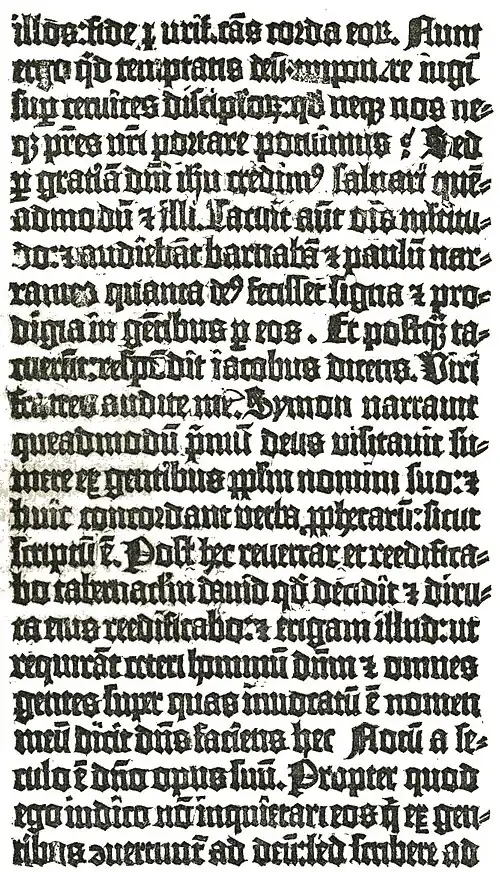 illos: fide ꝑ urifᷓ.cās corda eoꝝ. Nunc
ergo qͥd temptatis deū: imponere iugū
suꝑ ceruices discipl'oꝝ: qd neqꝫ nos ne⸗
qꝫ p̄res nr̄i portare potuimus? Sed
ꝑ gratiā dn̄i ih̄u credimꝰ saluari quē⸗
admodū ⁊ illi. Tacuit aūt oīs multitu⸗
do: ⁊ audiebāt barnabā ⁊ paulū nar⸗
rantes quanta deꝰ fecisset signa ⁊ pro⸗
digia in gētibus ꝑ eos. Et postqᷓ ta⸗
cuerūt: respōdit iacobus dicens. Viri
fratres audite me. Symon narrauit
quēadmodū p̄mū deus uisitauit su⸗
mere ex gentibus ppl'm nomini suo: ⁊
huic concordant uerba ꝓphetarū: sicut
scriptū ē. Post hec reuertar et reedifica⸗
bo tabernaclm̄ dauid qd̄ decidit ⁊ diru⸗
ta eius reedificabo: ⁊ erigam illud: ut
requirāt ceteri hominū dn̄m ⁊ omnes
gentes super quas inuocatū ē nomen
meū dicit dn̄s faciens hec Notū a se⸗
culo ē dn̄o opus suū. Propter quod
ego iudico nō inquietari eos q̄ ex gen⸗
tibus ꝯuertunt̄ ad deū: sed scribere ad